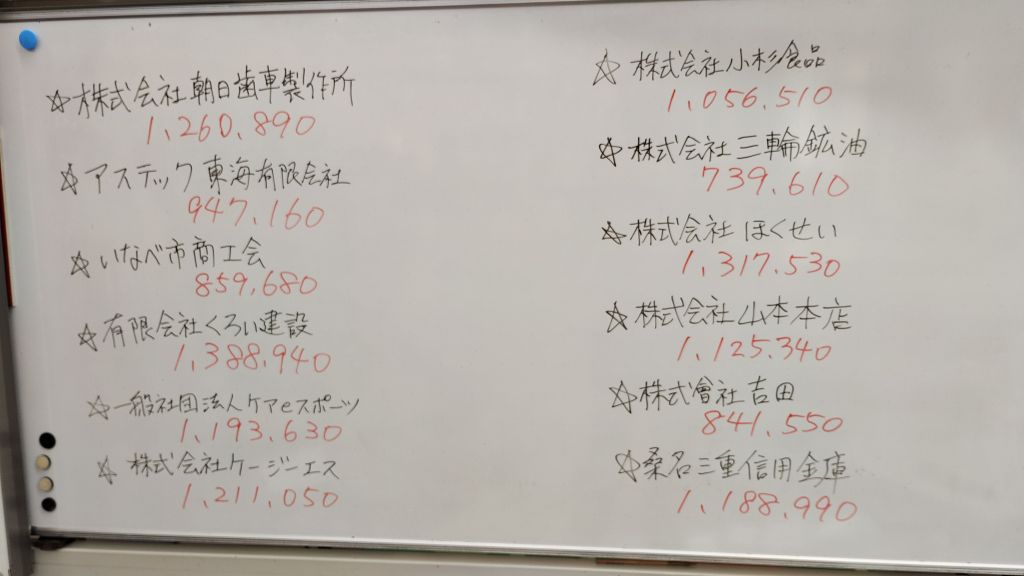 ☆株式会社朝日歯車製作所
1,260.890
☆アステック東海有限会社
947.160
☆いなべ市商工会
859,680
☆有限会社くろい建設
1,388.940
☆一般社団法人ケアeスポーツ
1,193.630
☆株式会社ケージーエス
1,211.050
☆株式会社小杉食品
1,056.510
☆株式会社三輪鉱油
739.610
☆株式会社ほくせい
1,317.530
☆株式会社山本本店
1,125.340
☆株式會社吉田
841.550
☆桑名三重信用金庫
1,188.990